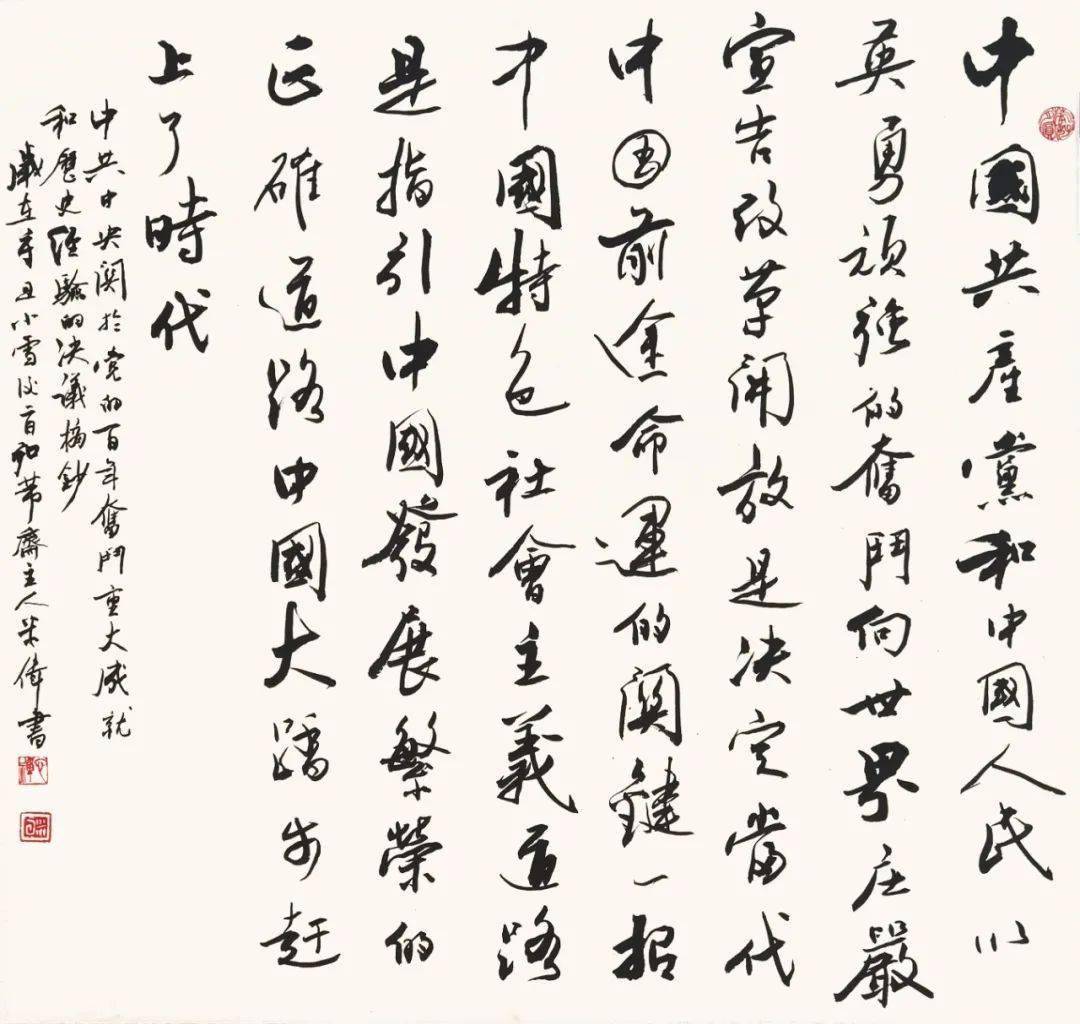 中國共產黨和中國人民以
英勇頑強的奮鬥向世界庄嚴
宣告改革開放是决定當代
中国前途命運的関鍵一招
中國特色社會主義道路
是指引中國發展繁榮的
正確道路中國大踏步赶
上了時代
中共中央関於党的百年奮鬥重大成就
和歷史經驗的决議摘鈔
歲在辛丑小雪後齋主人米偉書